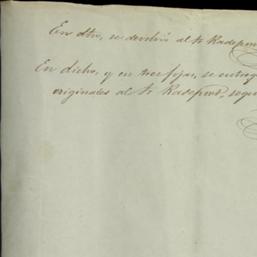 En dho, se devolvió al Sr Radepont
En dicho, y en tres fojas, se entreg
originales al Sr Radepont, segun